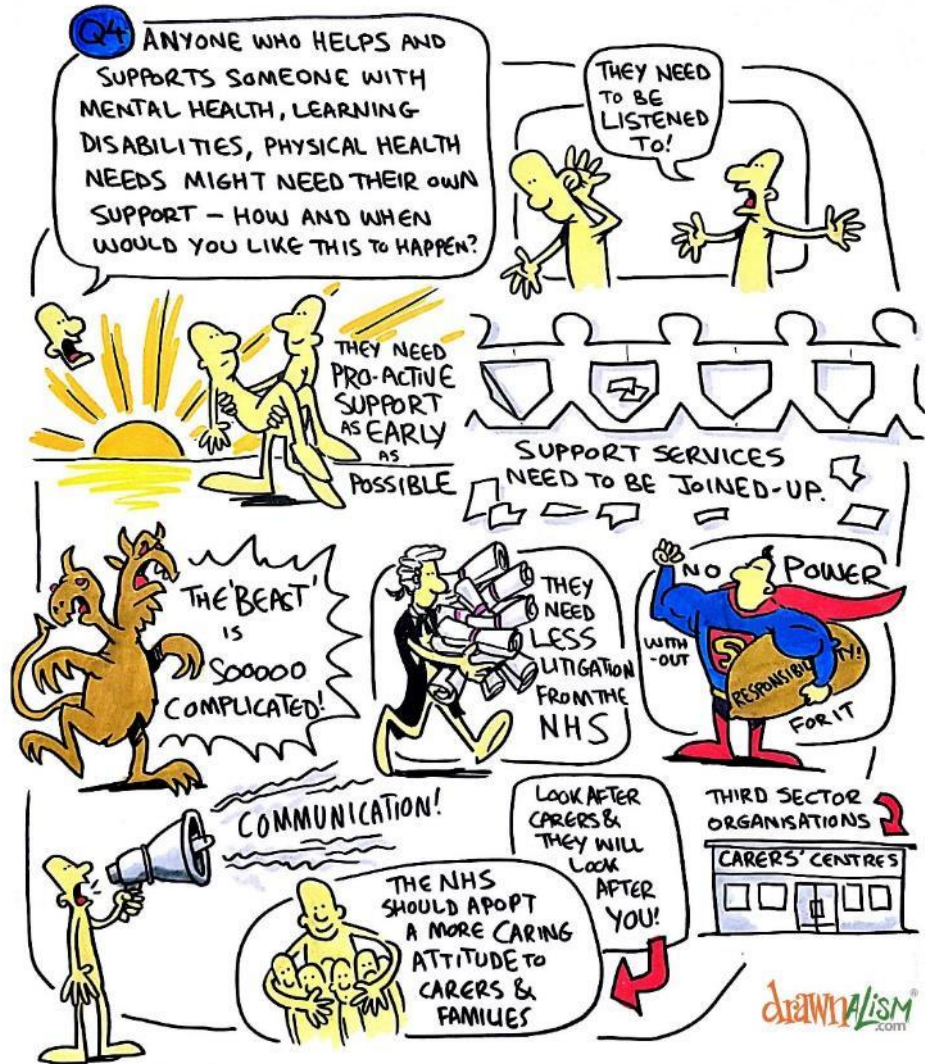 Q4 ANYONE WHO HELPS AND
SUPPORTS SOMEONE WITH
MENTAL HEALTH, LEARNING
DISABILITIES, PHYSICAL HEALTH
NEEDS MIGHT NEED THEIR OWN
SUPPORT – HOW AND WHEN
WOULD YOU LIKE THIS TO HAPPEN?
THEY NEED
TO BE
LISTENED
TO!
THEY NEED
PRO-ACTIVE
SUPPORT
AS EARLY
AS
POSSIBLE
SUPPORT SERVICES
NEED TO BE JOINED-UP.
THE 'BEAST'
IS
SOOOOO
COMPLICATED!
THEY
NEED
LESS
LITIGATION
FROM THE
NHS
NO POWER
WITH
-OUT
RESPONSIBILITY!
FOR IT
COMMUNICATION!
LOOK AFTER
CARERS &
THEY WILL
LOOK
AFTER
YOU!
THIRD SECTOR
ORGANISATIONS
CARERS' CENTRES
THE NHS
SHOULD APOPT
A MORE CARING
ATTITUDE TO
CARERS &
FAMILIES
drawnalism®
.com